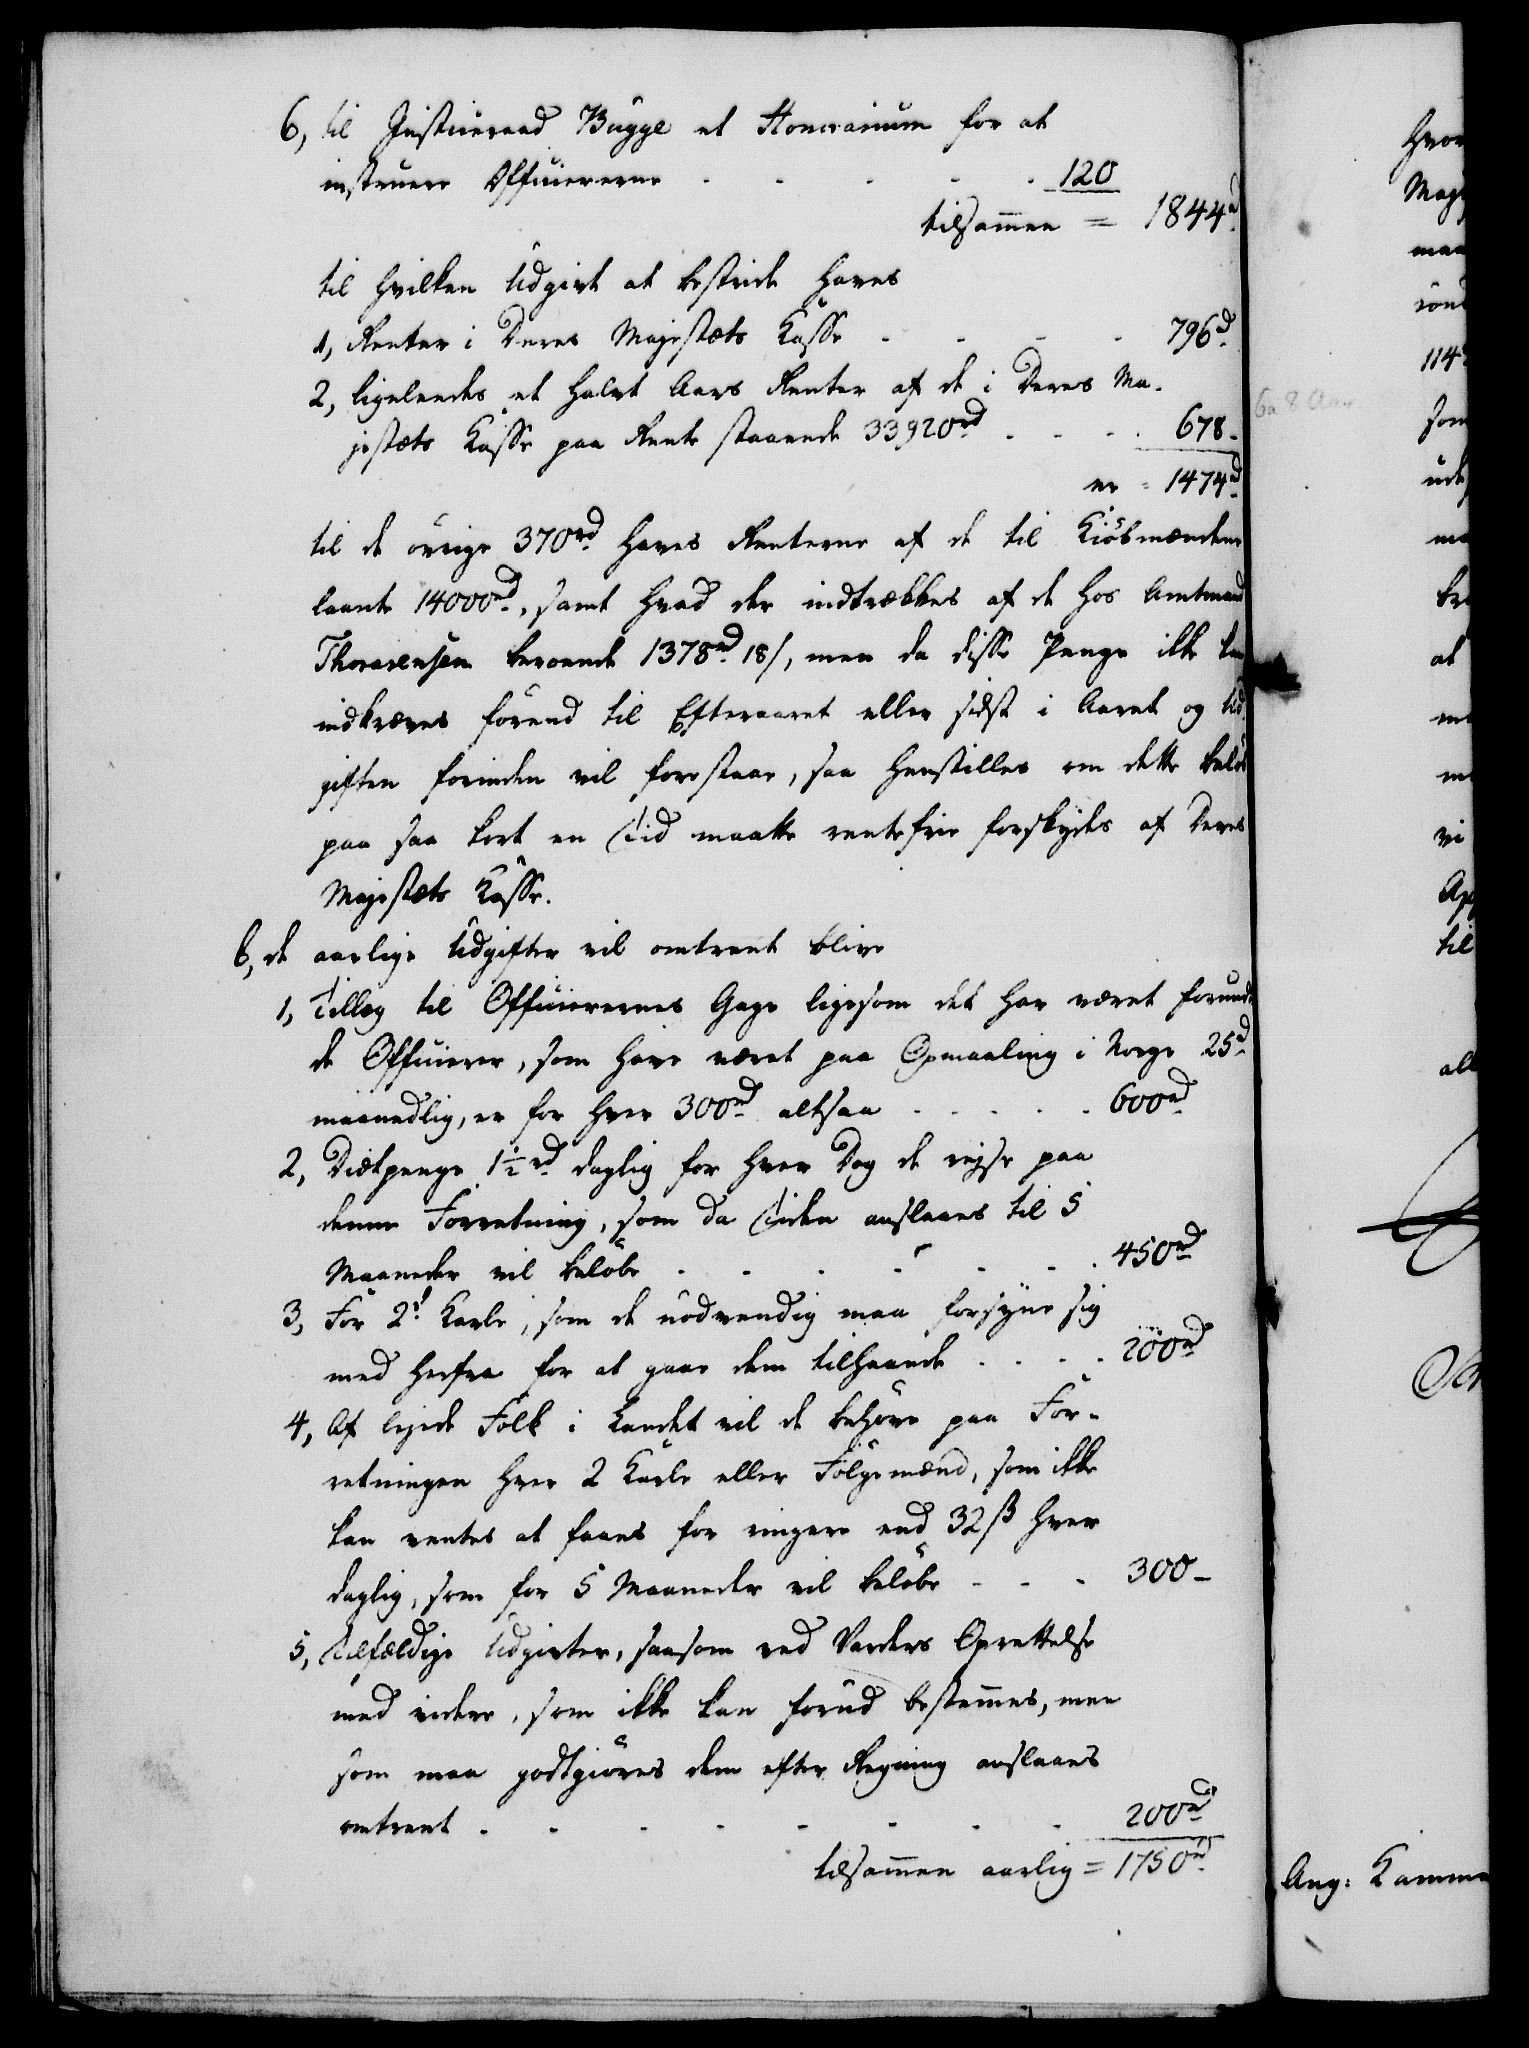 6, til Justiceraad Bugge et Honorarium for at
instruere Officiererne - - - - - 120
tilsammen = 1844rd
til hvilken Udgivt at bestride haves
1, Renter i Deres Majestæts Kasse - - - - 796rd
2, ligeledes et halvt Aars Renter af de i Deres Ma-
jestæts Kasse paa Rente staaende 33920rd - - - - 678-
er = 1474rd
til de øvrige 370rd haves Renterne af de til Kiøbmændene
laante 14000rd, samt hvad der indtrækkes af de hos Amtmand
Thorarensen beroende 1378rd 18/, men da disse Penge ikke kan
indkræves førend til Efteraaret eller sidst i Aaret og Ud-
giften forinden vil forestaae, saa henstilles om dette beløb
paa saa kort en Tid maatte rentefrie forskydes af Deres
Majestæts Kasse.
b, de aarlige Udgifter vil omtrent blive
1, Tillæg til Officierernes Gage ligesom det har været forundt
de Officierer, som have været paa Opmaaling i Norge 25rd
maanedlig, er for hver 300rd altsaa - - - - - 600rd
2, Diætpenge 1½rd daglig for hver Dag de rejse paa
denne Forretning, som da Tiden anslaaes til 5
Maaneder vil beløbe - - - - - - 450rd
3, For 2de Karle, som de nødvendig maa forsyne sig
med herfra for at gaae dem tilhaande - - - - 200rd
4, Af lejede Folk i Landet vil de behøve paa For-
retningen hver 2 Karle eller Følgemænd, som ikke
kan ventes at faaes for ringere end 32 ß hver
daglig, som for 5 Maaneder vil beløbe - - - 300-
5, Tilfældige Udgivter, saasom ved Varders Oprettelse
med videre, som ikke kan forud bestemmes, men
som maa godtgiøres dem efter Regning anslaaes
omtrent - - - - - - - - 200rd
tilsammen aarlig = 1750rd
6 a 8 Aar
Ang: Kamme